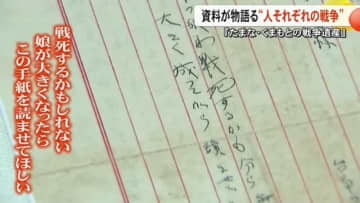 資料が物語る“人それぞれの戦争”
「たまな・くまもとの戦争遺産」
戦死するかもしれない
娘が大きくなったら
この手紙を読ませてほしい
戦死するかも分ら
大きく成つてから